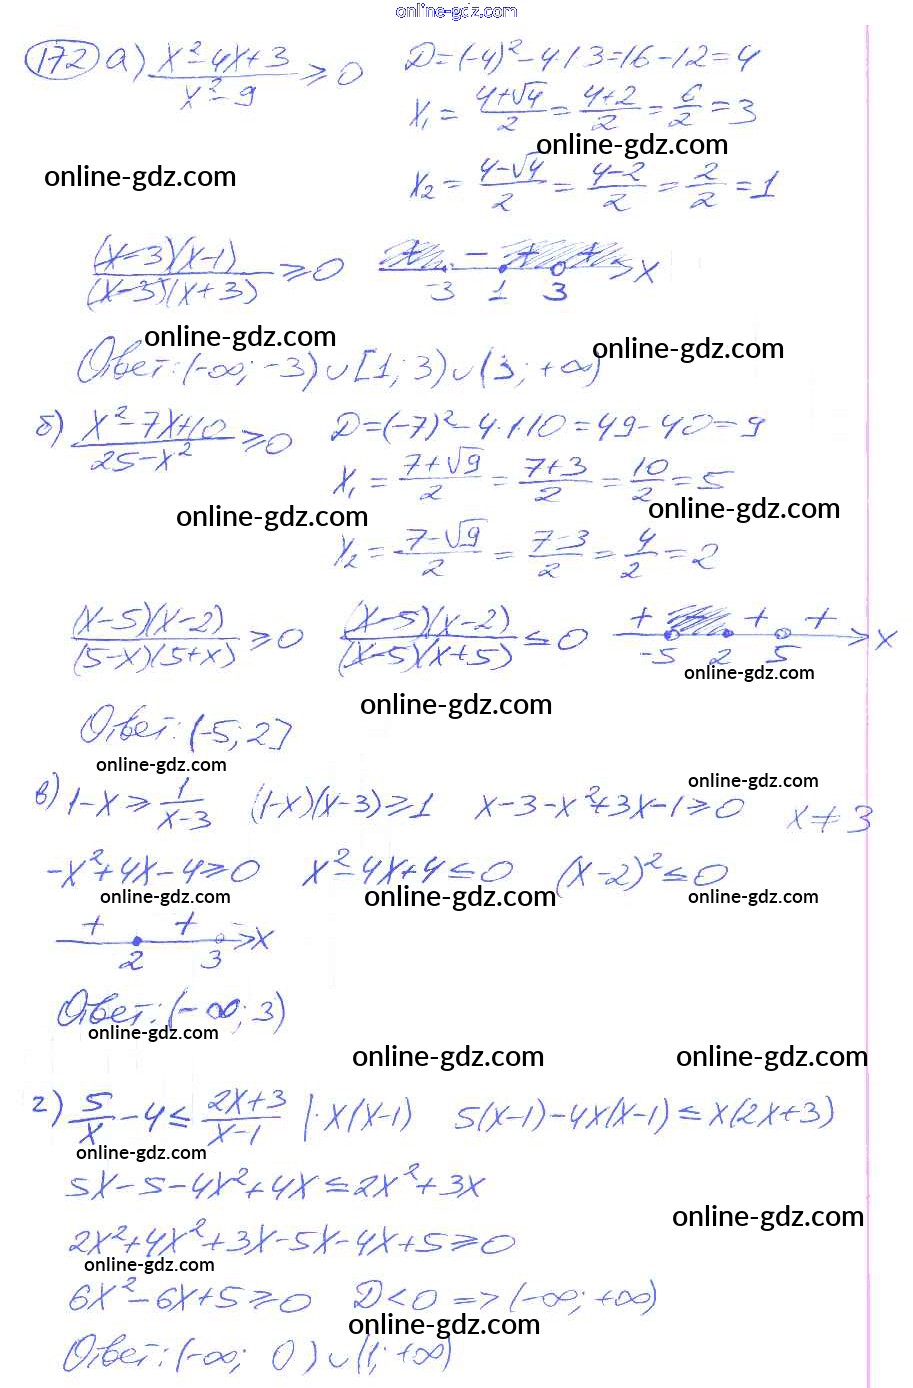 online-gdz.com
172 а) (x²-4x+3)/(x²-9) ≥ 0 D=(-4)²-4·1·3=16-12=4
x₁ = (4+√4)/2 = (4+2)/2 = 6/2 = 3
online-gdz.com
online-gdz.com
x₂ = (4-√4)/2 = (4-2)/2 = 2/2 = 1
(x-3)(x-1)/((x-3)(x+3)) ≥ 0 + - + + x
-3 1 3
online-gdz.com online-gdz.com
Ответ: (-∞; -3)∪[1; 3)∪(3; +∞)
б) (x²-7x+10)/(25-x²) ≥ 0 D=(-7)²-4·1·10=49-40=9
x₁ = (7+√9)/2 = (7+3)/2 = 10/2 = 5
online-gdz.com online-gdz.com
x₂ = (7-√9)/2 = (7-3)/2 = 4/2 = 2
(x-5)(x-2)/((5-x)(5+x)) ≥ 0 (x-5)(x-2)/((x-5)(x+5)) ≤ 0 + + + x
-5 2 5
online-gdz.com
online-gdz.com
Ответ: (-5; 2]
online-gdz.com
online-gdz.com
в) 1-x ≥ 1/(x-3) (1-x)(x-3) ≥ 1 x-3-x²+3x-1 ≥ 0 x ≠ 3
-x²+4x-4 ≥ 0 x²-4x+4 ≤ 0 (x-2)² ≤ 0
online-gdz.com online-gdz.com online-gdz.com
+ + - x
2 3
Ответ: (-∞; 3)
online-gdz.com
online-gdz.com online-gdz.com
г) 5/x - 4 ≤ (2x+3)/(x-1) |·x(x-1) 5(x-1)-4x(x-1) ≤ x(2x+3)
online-gdz.com
5x-5-4x²+4x ≤ 2x²+3x
online-gdz.com
2x²+4x²+3x-5x-4x+5 ≥ 0
online-gdz.com
6x²-6x+5 ≥ 0 D<0 => (-∞; +∞)
online-gdz.com
Ответ: (-∞; 0)∪(1; +∞)